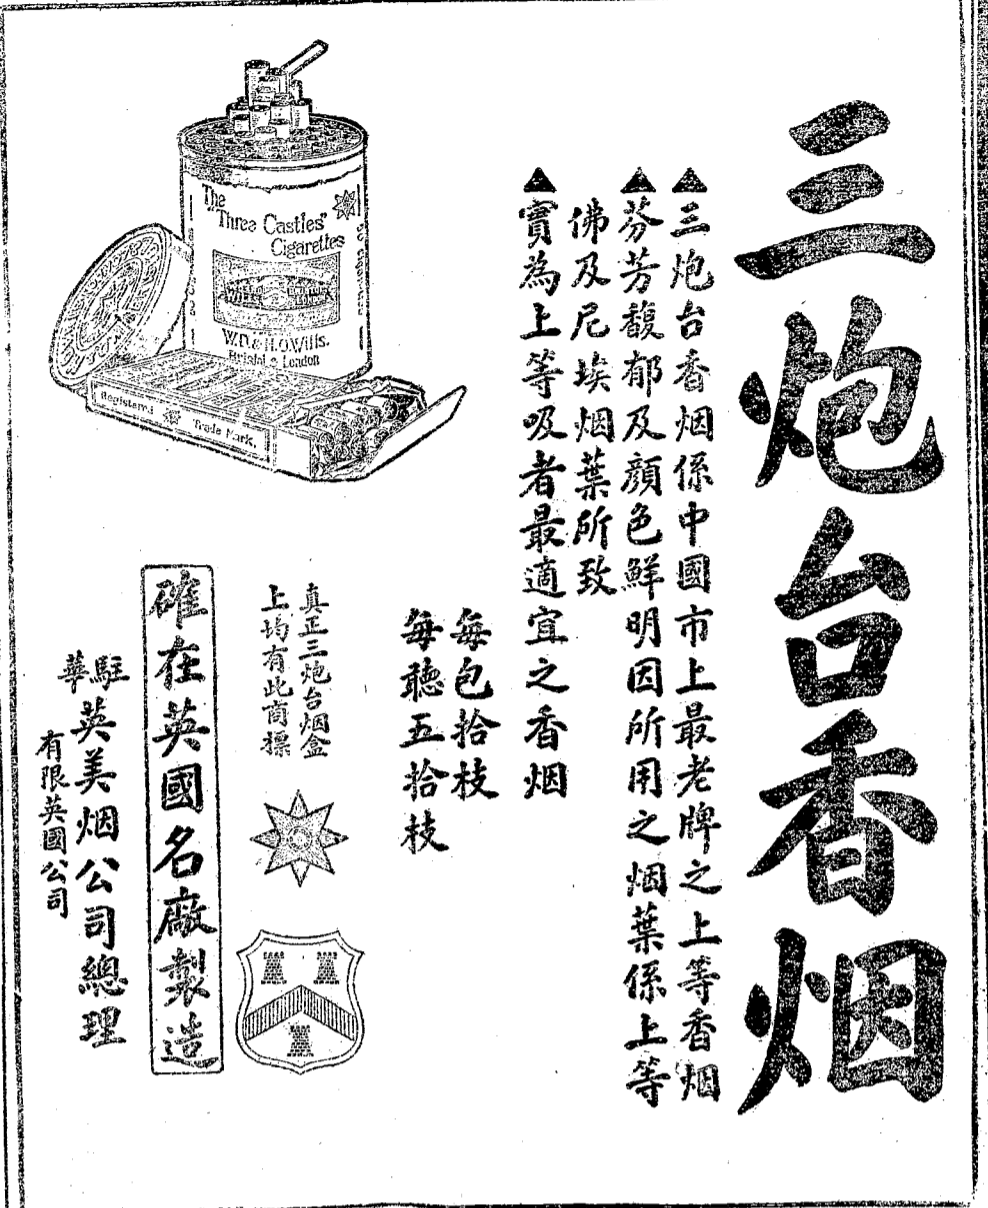 三炮台香烟
▲三炮台香烟係中國市上最老牌之上等香烟
▲芬芳馥郁及顏色鮮明因所用之烟葉係上等
佛及尼埃烟葉所致
▲實為上等吸者最適宜之香烟
每包拾枝
每聽五拾枝
The
"Three Castles"
Cigarettes
W.D. & H.O. Wills.
Bristol & London
Registered
Trade Mark.
真正三炮台烟盒
上均有此商標
確在英國名廠製造
駐華英美烟公司總理
有限英國公司